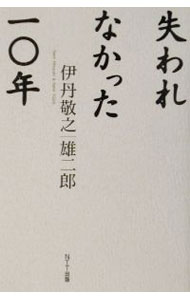 失われ
なかった
一〇年
伊丹敬之|雄二郎
NTT出版